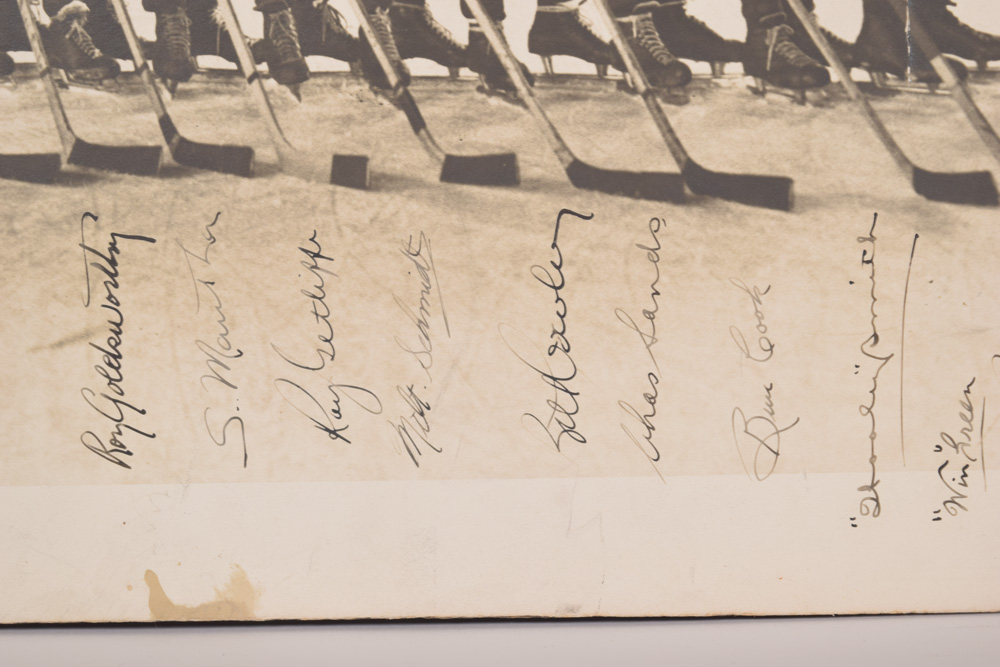 Roy Goldsworthy
S. Mantha
Ray Getliffe
Milt. Schmidt
Chas Sands
Bun Cook
"Hooley" Smith
"Win" Green